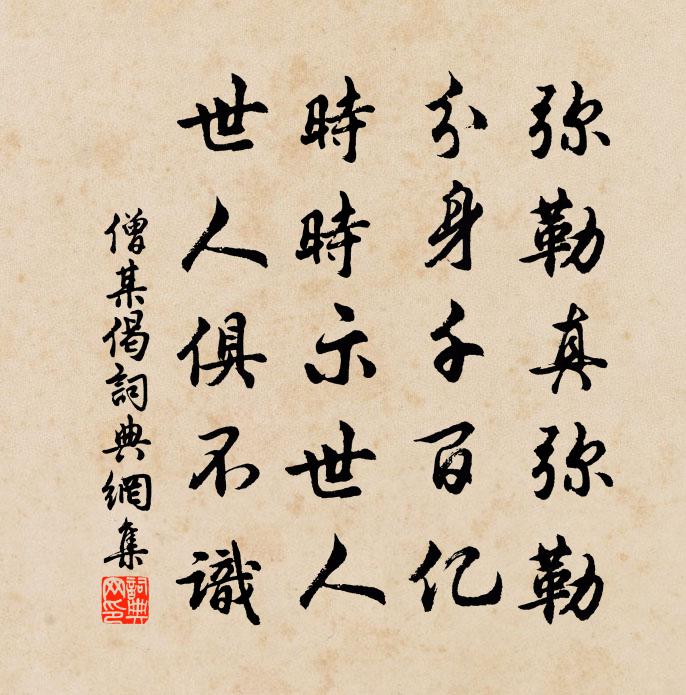 弥勒真弥勒
分身千百亿
時時示世人
世人俱不識
僧某偈詞典網集
詞典
网印